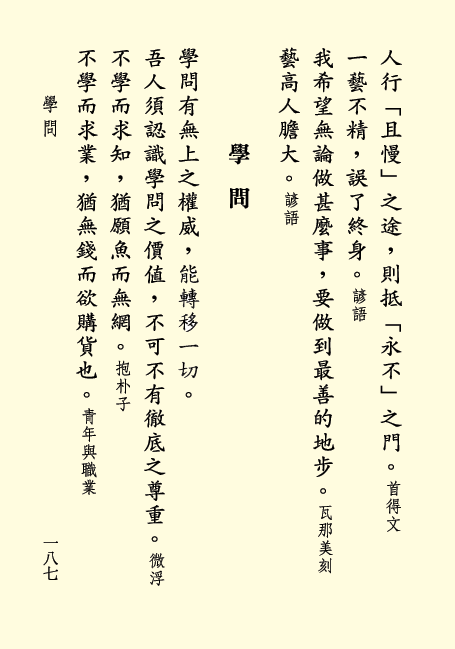 人行「且慢」之途，則抵「永不」之門。首得文
一藝不精，誤了終身。諺語
我希望無論做甚麼事，要做到最善的地步。瓦那美刻
藝高人膽大。諺語
學問
學問有無上之權威，能轉移一切。
吾人須認識學問之價值，不可不有徹底之尊重。微浮
不學而求知，猶願魚而無網。抱朴子
不學而求業，猶無錢而欲購貨也。青年與職業
學問
一八七